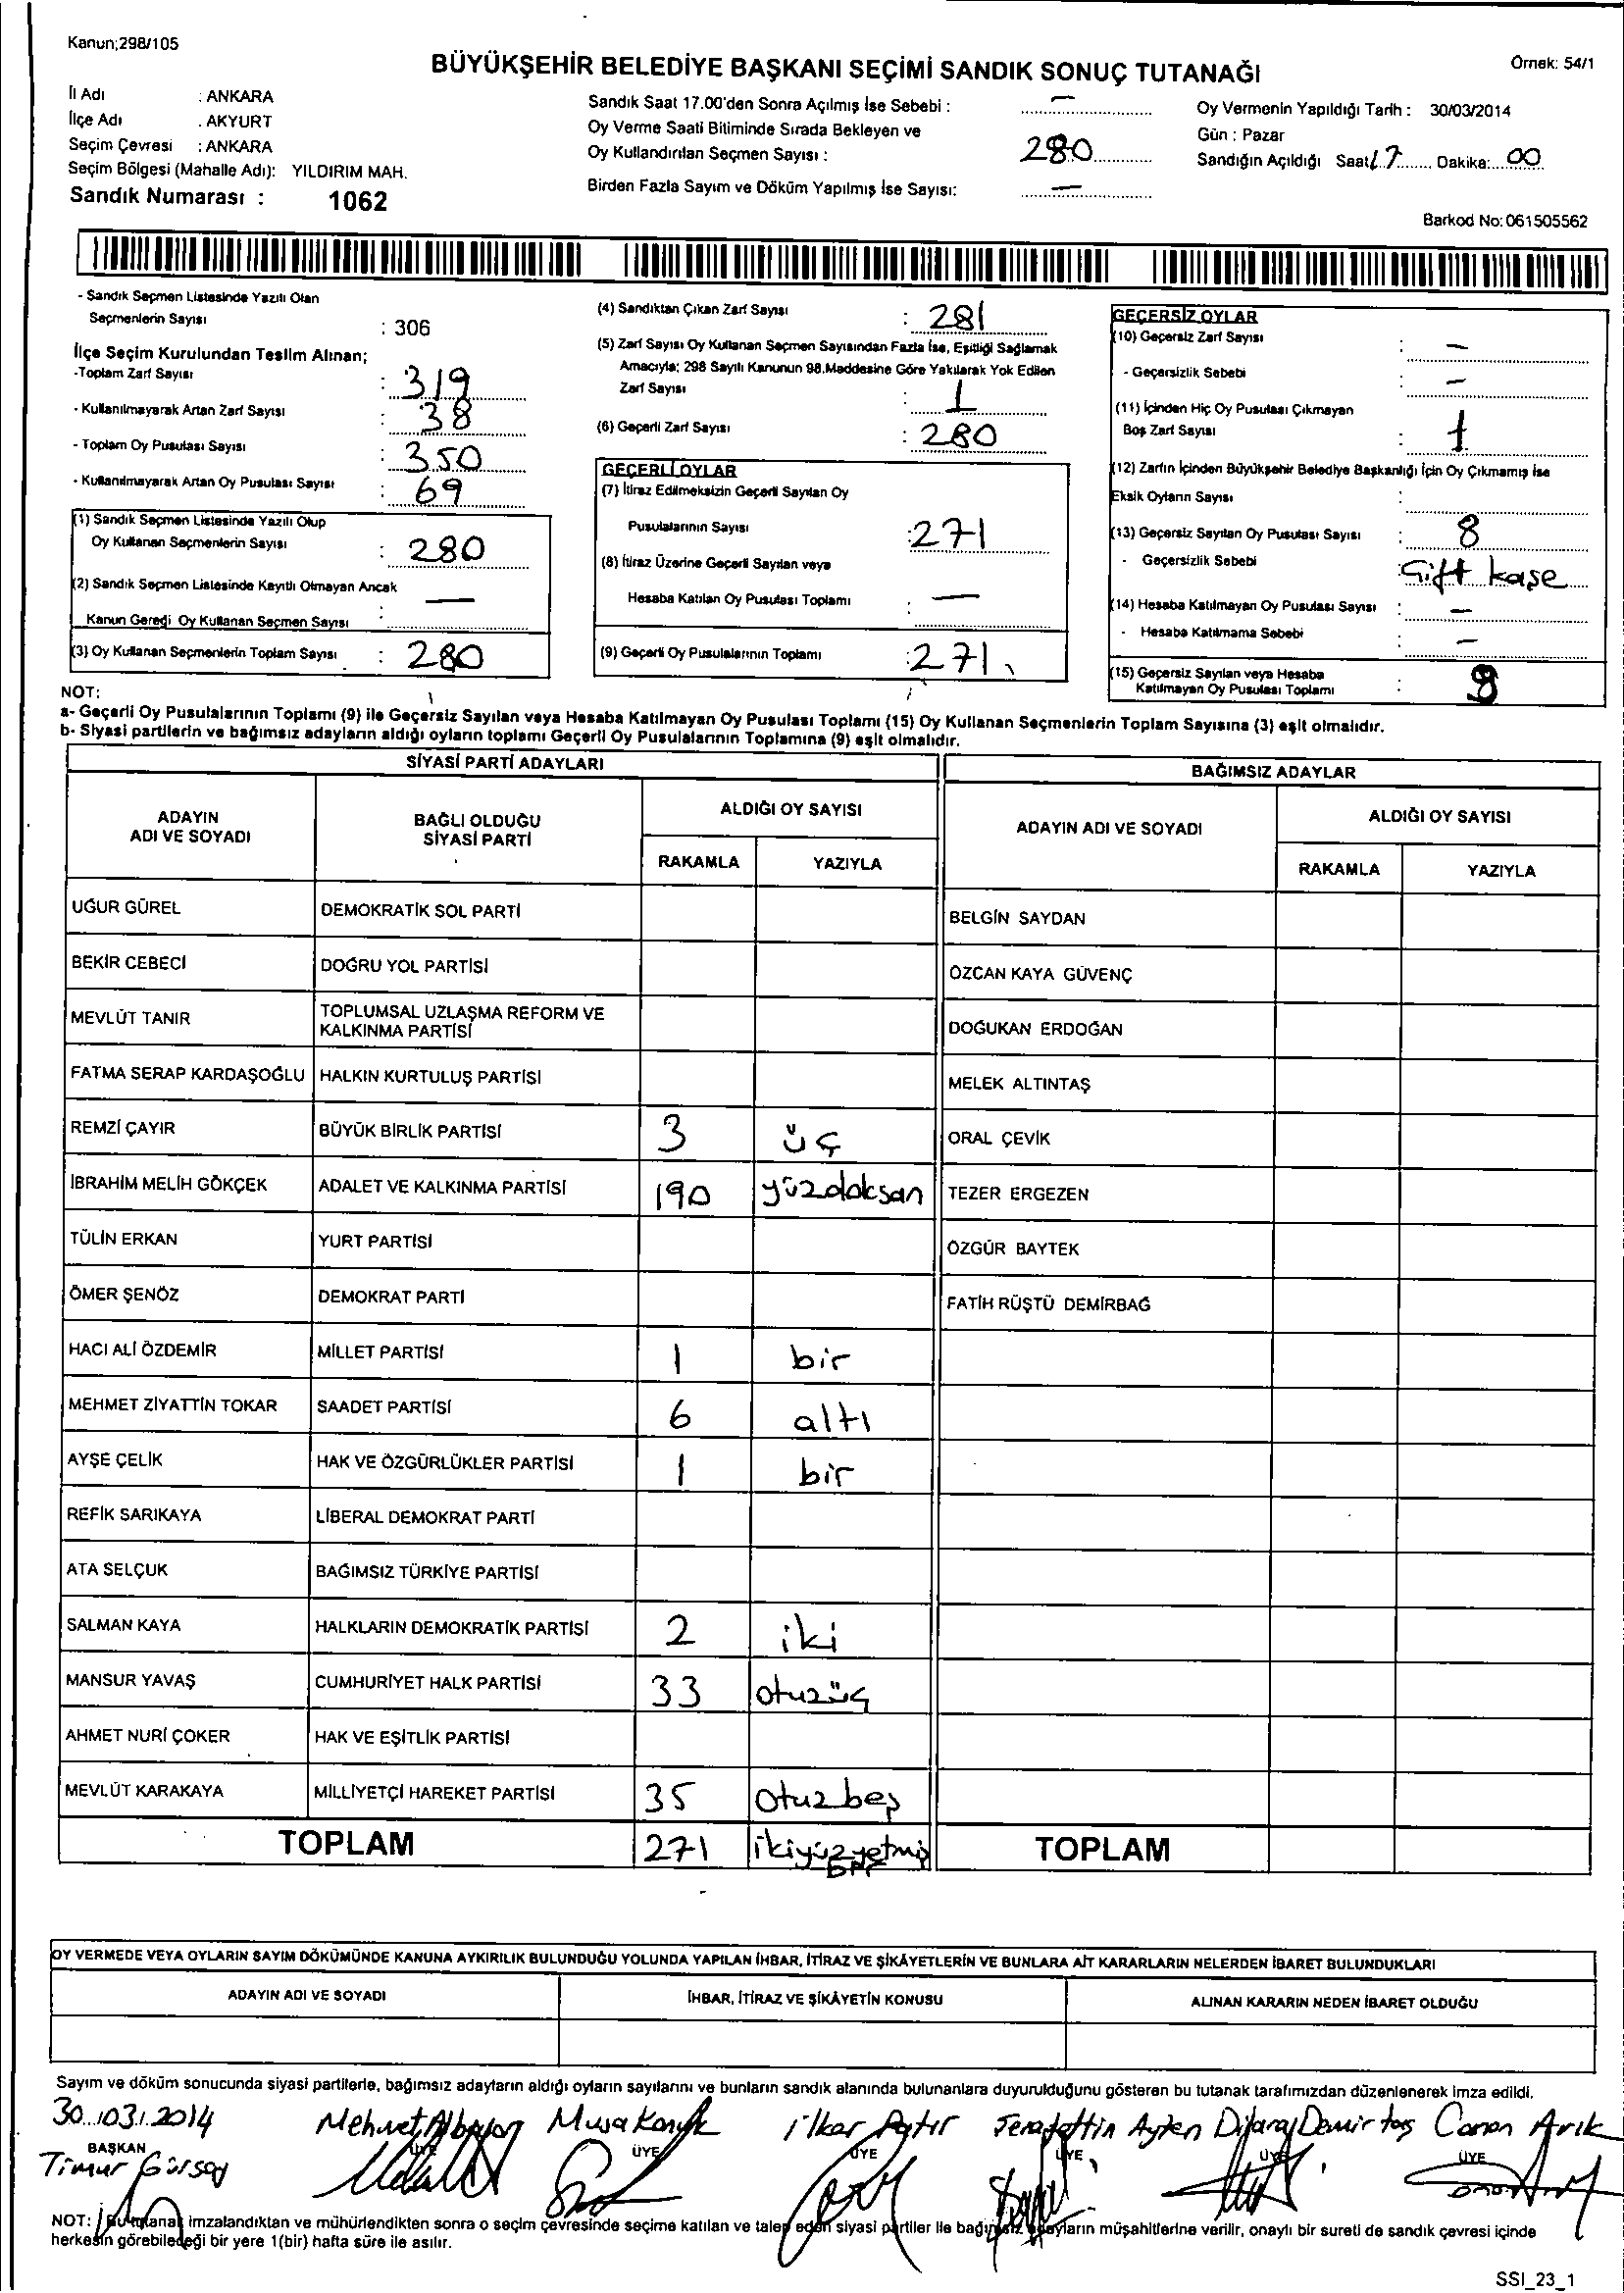 Kanun;298/105
BÜYÜKŞEHİR BELEDİYE BAŞKANI SEÇİMİ SANDIK SONUÇ TUTANAĞI
Örnek: 54/1
İl Adı : ANKARA
İlçe Adı : AKYURT
Seçim Çevresi : ANKARA
Seçim Bölgesi (Mahalle Adı): YILDIRIM MAH.
Sandık Numarası : 1062
Sandık Saat 17.00'den Sonra Açılmış İse Sebebi : —
Oy Verme Saati Bitiminde Sırada Bekleyen ve
Oy Kullandırılan Seçmen Sayısı : 280
Birden Fazla Sayım ve Döküm Yapılmış İse Sayısı: —
Oy Vermenin Yapıldığı Tarih : 30/03/2014
Gün : Pazar
Sandığın Açıldığı Saat 17 Dakika: 00
Barkod No: 061505562
- Sandık Seçmen Listesinde Yazılı Olan
Seçmenlerin Sayısı : 306
İlçe Seçim Kurulundan Teslim Alınan;
-Toplam Zarf Sayısı : 319
- Kullanılmayarak Artan Zarf Sayısı : 38
- Toplam Oy Pusulası Sayısı : 350
- Kullanılmayarak Artan Oy Pusulası Sayısı : 69
(1) Sandık Seçmen Listesinde Yazılı Olup
Oy Kullanan Seçmenlerin Sayısı : 280
(2) Sandık Seçmen Listesinde Kayıtlı Olmayan Ancak
Kanun Gereği Oy Kullanan Seçmen Sayısı : —
(3) Oy Kullanan Seçmenlerin Toplam Sayısı : 280
(4) Sandıktan Çıkan Zarf Sayısı : 281
(5) Zarf Sayısı Oy Kullanan Seçmen Sayısından Fazla İse, Eşitliği Sağlamak
Amacıyla; 298 Sayılı Kanunun 98.Maddesine Göre Yakılarak Yok Edilen
Zarf Sayısı : 1
(6) Geçerli Zarf Sayısı : 280
GEÇERLİ OYLAR
(7) İtiraz Edilmeksizin Geçerli Sayılan Oy
Pusulalarının Sayısı : 271
(8) İtiraz Üzerine Geçerli Sayılan veya
Hesaba Katılan Oy Pusulası Toplamı : —
(9) Geçerli Oy Pusulalarının Toplamı : 271
GEÇERSİZ OYLAR
(10) Geçersiz Zarf Sayısı : —
- Geçersizlik Sebebi : —
(11) İçinden Hiç Oy Pusulası Çıkmayan
Boş Zarf Sayısı : 1
(12) Zarfın İçinden Büyükşehir Belediye Başkanlığı İçin Oy Çıkmamış İse
Eksik Oyların Sayısı :
(13) Geçersiz Sayılan Oy Pusulası Sayısı : 8
- Geçersizlik Sebebi : Çift kaşe
(14) Hesaba Katılmayan Oy Pusulası Sayısı : —
- Hesaba Katılmama Sebebi : —
(15) Geçersiz Sayılan veya Hesaba
Katılmayan Oy Pusulası Toplamı :
NOT:
a- Geçerli Oy Pusulalarının Toplamı (9) ile Geçersiz Sayılan veya Hesaba Katılmayan Oy Pusulası Toplamı (15) Oy Kullanan Seçmenlerin Toplam Sayısına (3) eşit olmalıdır.
b- Siyasi partilerin ve bağımsız adayların aldığı oyların toplamı Geçerli Oy Pusulalarının Toplamına (9) eşit olmalıdır.
SİYASİ PARTİ ADAYLARI
BAĞIMSIZ ADAYLAR
ADAYIN ADI VE SOYADI
BAĞLI OLDUĞU SİYASİ PARTİ
ALDIĞI OY SAYISI
ADAYIN ADI VE SOYADI
ALDIĞI OY SAYISI
RAKAMLA YAZIYLA RAKAMLA YAZIYLA
UĞUR GÜREL DEMOKRATİK SOL PARTİ BELGİN SAYDAN
BEKİR CEBECİ DOĞRU YOL PARTİSİ ÖZCAN KAYA GÜVENÇ
MEVLÜT TANIR TOPLUMSAL UZLAŞMA REFORM VE KALKINMA PARTİSİ DOĞUKAN ERDOĞAN
FATMA SERAP KARDAŞOĞLU HALKIN KURTULUŞ PARTİSİ MELEK ALTINTAŞ
REMZİ ÇAYIR BÜYÜK BİRLİK PARTİSİ 3 üç ORAL ÇEVİK
İBRAHİM MELİH GÖKÇEK ADALET VE KALKINMA PARTİSİ 190 yüzdoksan TEZER ERGEZEN
TÜLİN ERKAN YURT PARTİSİ ÖZGÜR BAYTEK
ÖMER ŞENÖZ DEMOKRAT PARTİ FATİH RÜŞTÜ DEMİRBAĞ
HACI ALİ ÖZDEMİR MİLLET PARTİSİ 1 bir
MEHMET ZİYATTİN TOKAR SAADET PARTİSİ 6 altı
AYŞE ÇELİK HAK VE ÖZGÜRLÜKLER PARTİSİ 1 bir
REFİK SARIKAYA LİBERAL DEMOKRAT PARTİ
ATA SELÇUK BAĞIMSIZ TÜRKİYE PARTİSİ
SALMAN KAYA HALKLARIN DEMOKRATİK PARTİSİ 2 iki
MANSUR YAVAŞ CUMHURİYET HALK PARTİSİ 33 otuzüç
AHMET NURİ ÇOKER HAK VE EŞİTLİK PARTİSİ
MEVLÜT KARAKAYA MİLLİYETÇİ HAREKET PARTİSİ 35 otuzbeş
TOPLAM 271 ikiyüzyetmiş bir TOPLAM
OY VERMEDE VEYA OYLARIN SAYIM DÖKÜMÜNDE KANUNA AYKIRILIK BULUNDUĞU YOLUNDA YAPILAN İHBAR, İTİRAZ VE ŞİKÂYETLERİN VE BUNLARA AİT KARARLARIN NELERDEN İBARET BULUNDUKLARI
ADAYIN ADI VE SOYADI İHBAR, İTİRAZ VE ŞİKÂYETİN KONUSU ALINAN KARARIN NEDEN İBARET OLDUĞU
Sayım ve döküm sonucunda siyasi partilerle, bağımsız adayların aldığı oyların sayılarını ve bunların sandık alanında bulunanlara duyurulduğunu gösteren bu tutanak tarafımızdan düzenlenerek imza edildi.
30/03/2014 Mehmet Musa ilker Dilara Demirtaş Canan Arık
BAŞKAN ÜYE ÜYE ÜYE ÜYE ÜYE ÜYE
Timur Gürsoy
NOT: Bu tutanak imzalandıktan ve mühürlendikten sonra o seçim çevresinde seçime katılan ve talep eden siyasi partiler ile bağımsız adayların müşahitlerine verilir, onaylı bir sureti de sandık çevresi içinde
herkesin görebileceği bir yere 1(bir) hafta süre ile asılır.
SSI_23_1